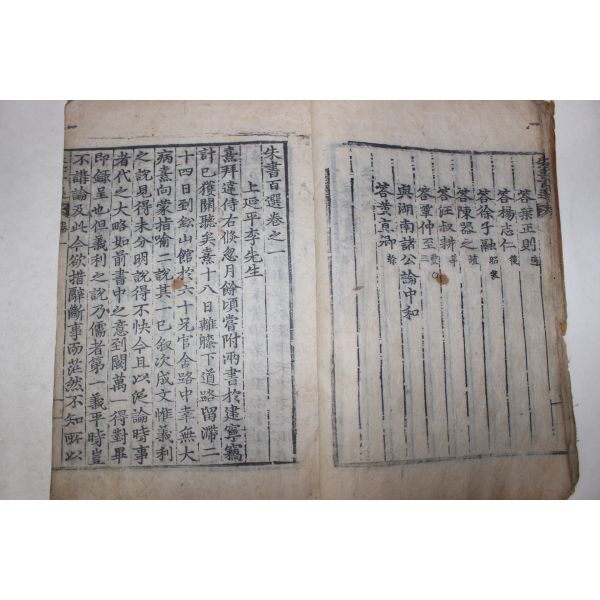 答葉正則適
答楊志仁復
答徐子融昭然
答陳器之埴
答汪叔耕莘
答覃仲至豐之
與湖南諸公論中和
答黃直卿榦
朱書百選卷之一
上延平李先生
熹拜違侍右倏忽月餘頃嘗附兩書於建寧竊
計已獲關聽矣熹十八日離膝下道路留滯二
十四日到鉛山館於六十兄官舍路中幸無大
病熹向蒙指喻二說其一已敘次成文惟義利
之說見得未分明說得不快今且以泛論時事
者代之大略如前書中之意到闕萬一得對畢
即錄呈也但義利之說乃儒者第一義平時豈
不講論及此今欲措辭斷事而茫然不知所以